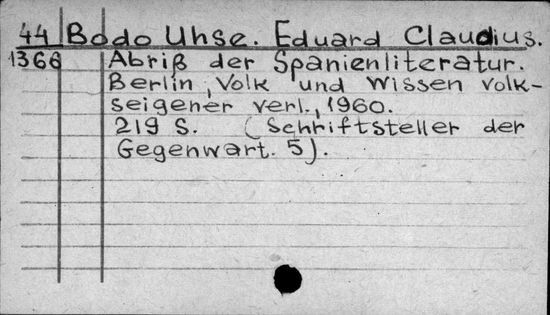 44 Bodo Uhse. Eduard Claudius.
1366 Abriß der Spanienliteratur.
Berlin, Volk und Wissen volk-
seigener verl., 1960.
219 S. (Schriftsteller der
Gegenwart. 5).